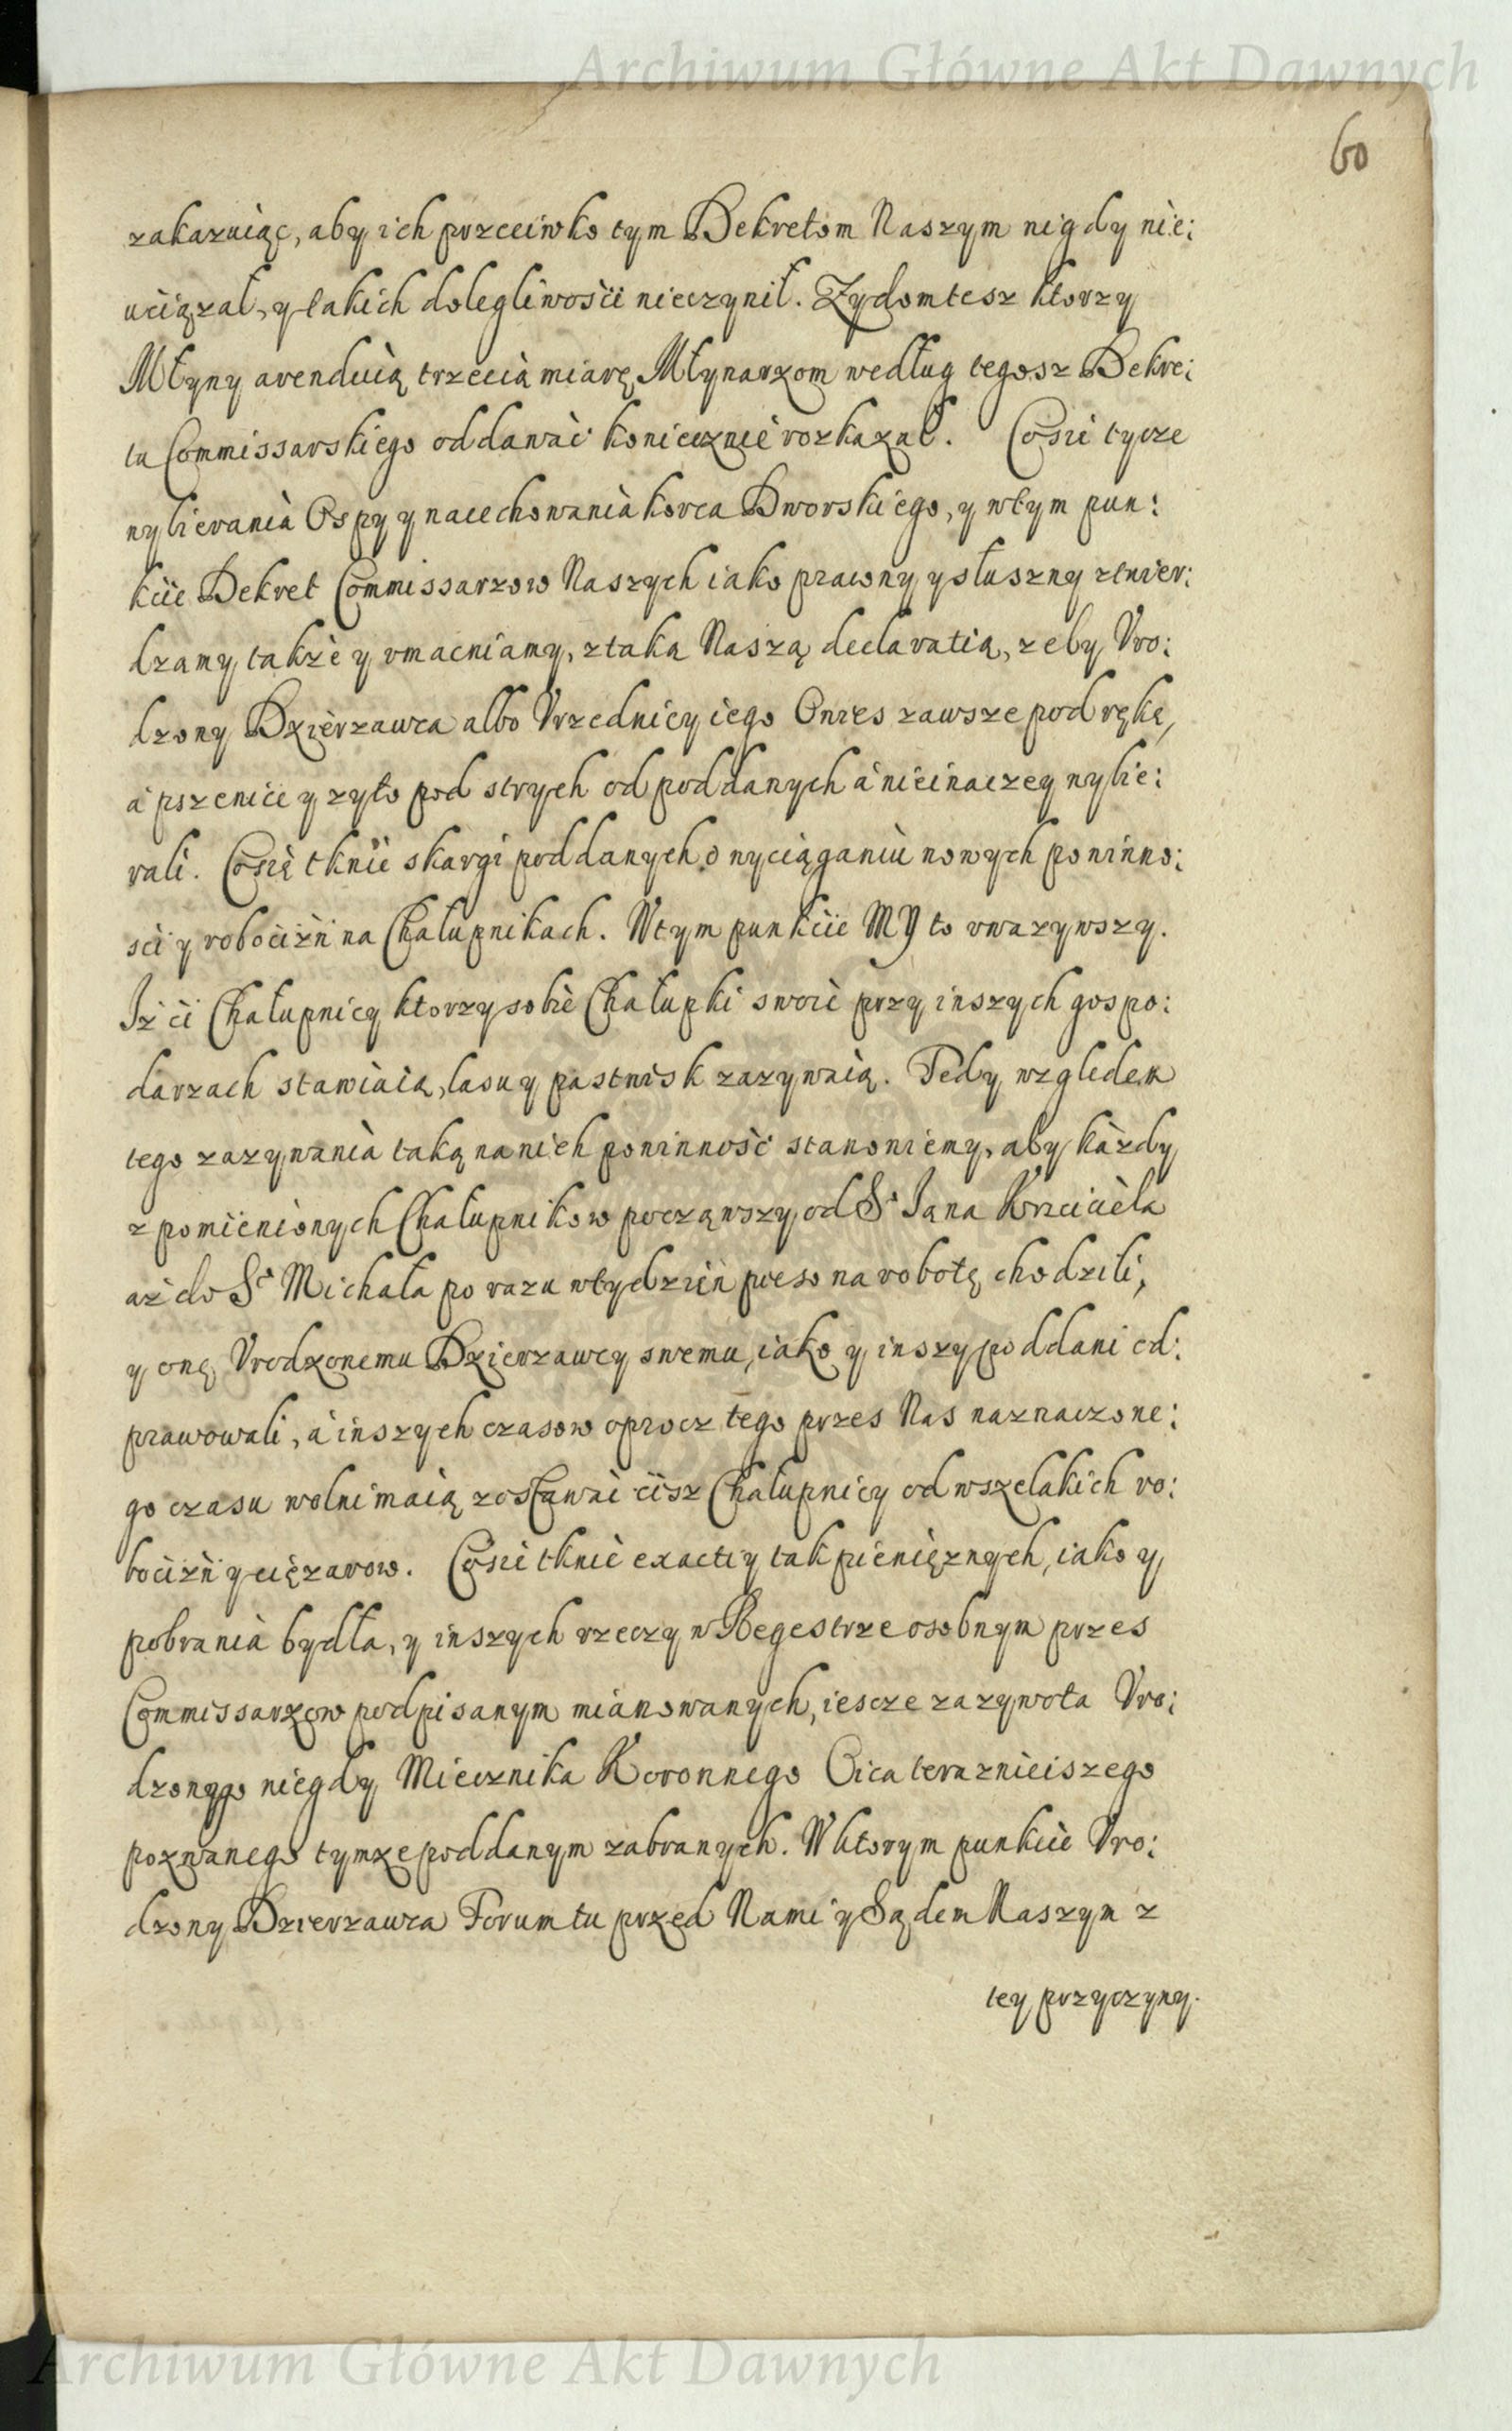 Archiwum Główne Akt Dawnych
60
zakazuiąc, aby ich przeciwko tym Dekretom Naszym nigdy nie:
uciązał, y takich dolegliwości nieczynił. Zydom tesz ktorzy
Młyny arenduią trzecią miarę Młynarzom według tegosz Dekre:
tu Commissarskiego oddawać koniecznie rozkazał. Co sie tycze
wybierania Ospy y nacechowania korca Dworskiego, y w tym pun:
kcie Dekret Commissarzow Naszych iako prawny y słuszny ztwier:
dzamy także y vmacniamy, z taką Naszą declaratią, zeby Vro:
dzony Dzierzawca albo Vrzednicy iego Owies zawsze pod ręką,
a pszenice y zyto pod strych od poddanych a nieinaczey wybie:
rali. Co się tknie skargi poddanych o wyciąganiu nowych powinno:
sci y robocizn na Chałupnikach. W tym punkcie MY to vwazywszy.
Iz ci Chałupnicy ktorzy sobie Chałupki swoie przy inszych gospo:
darzach stawiaią, lasu y pastwisk zazywaią. Tedy względem
tego zazywania taką na nich powinność stanowiemy, aby każdy
z pomienionych Chałupnikow począwszy od So Jana Krzciciela
aż do So Michała po razu w tydzień pieso na robotę chodzili,
y onę Vrodzonemu Dzierzawcy swemu, iako y inszy poddani od:
prawowali, a inszych czasow oprocz tego przes Nas naznaczone:
go czasu wolni maią zostawać cisz Chałupnicy od wszelakich ro:
bocizn y ciężarow. Co sie tknie exactiy tak pieniężnych, iako y
pobrania bydła, y inszych rzeczy w Regestrze osobnym przes
Commissarzow podpisanym mianowanych, iescze za zywota Vro:
dzonego niegdy Miecznika Koronnego Oica teraznieiszego
pozwanego tymze poddanym zabranych. W ktorym punkcie Vro:
dzony Dzierzawca Forum tu przed Nami y Sądem Naszym z
tey przyczyny.
Archiwum Główne Akt Dawnych